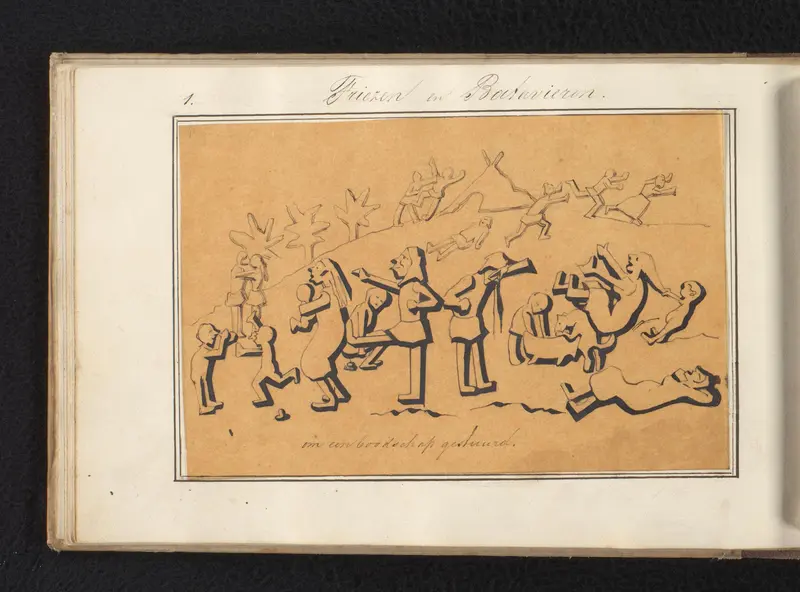 1.
Friezen en Batavieren.
om een boodschap gestuurd.